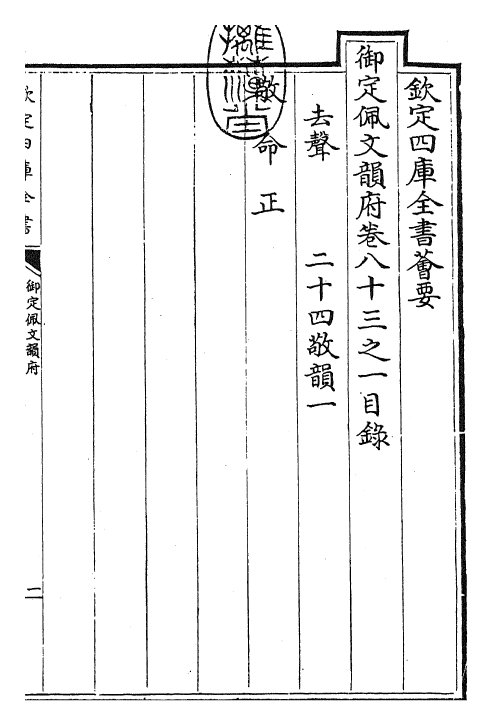 欽定四庫全書薈要
御定佩文韻府卷八十三之一目錄
去聲 二十四敬韻一
敬 命 正
欽定四庫全書
御定佩文韻府